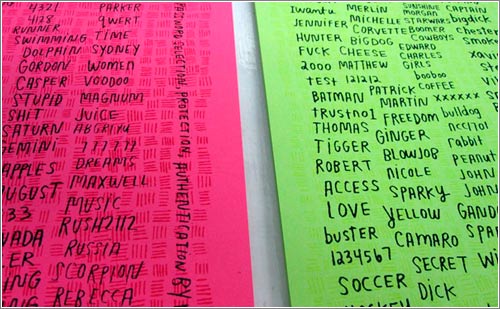 4321 PARKER
4128 QWERT
RUNNER TIME
SWIMMING
DOLPHIN SYDNEY
GORDON WOMEN
CASPER VOODOO
STUPID MAGNUM
SHIT JUICE
SATURN ABGRTY
GEMINI 777777
APPLES DREAMS
AUGUST MAXWELL
333 MUSIC
RUSH2112
RUSSIA
SCORPION
REBECCA
PASSWORD SELECTION, PROTECTION, AUTHENTICATION BY
Iwantu MERLIN SUNSHINE CAPTAIN
MORGAN
JENNIFER MICHELLE STARWARS bigdick
CORVETTE BOOMER chester
HUNTER BIGDOG COWBOYS
FUCK CHEESE EDWARD
CHARLES
2000 MATTHEW GIRLS
TEST 121212 booboo
PATRICK COFFEE
BATMAN MARTIN XXXXXX
trustno1 FREEDOM bulldog
THOMAS ncc1701
TIGGER GINGER rabbit
ROBERT BLOWJOB PEANUT
ACCESS nicole JOHN
SPARKY
LOVE YELLOW
buster CAMARO
1234567 SECRET
SOCCER DICK